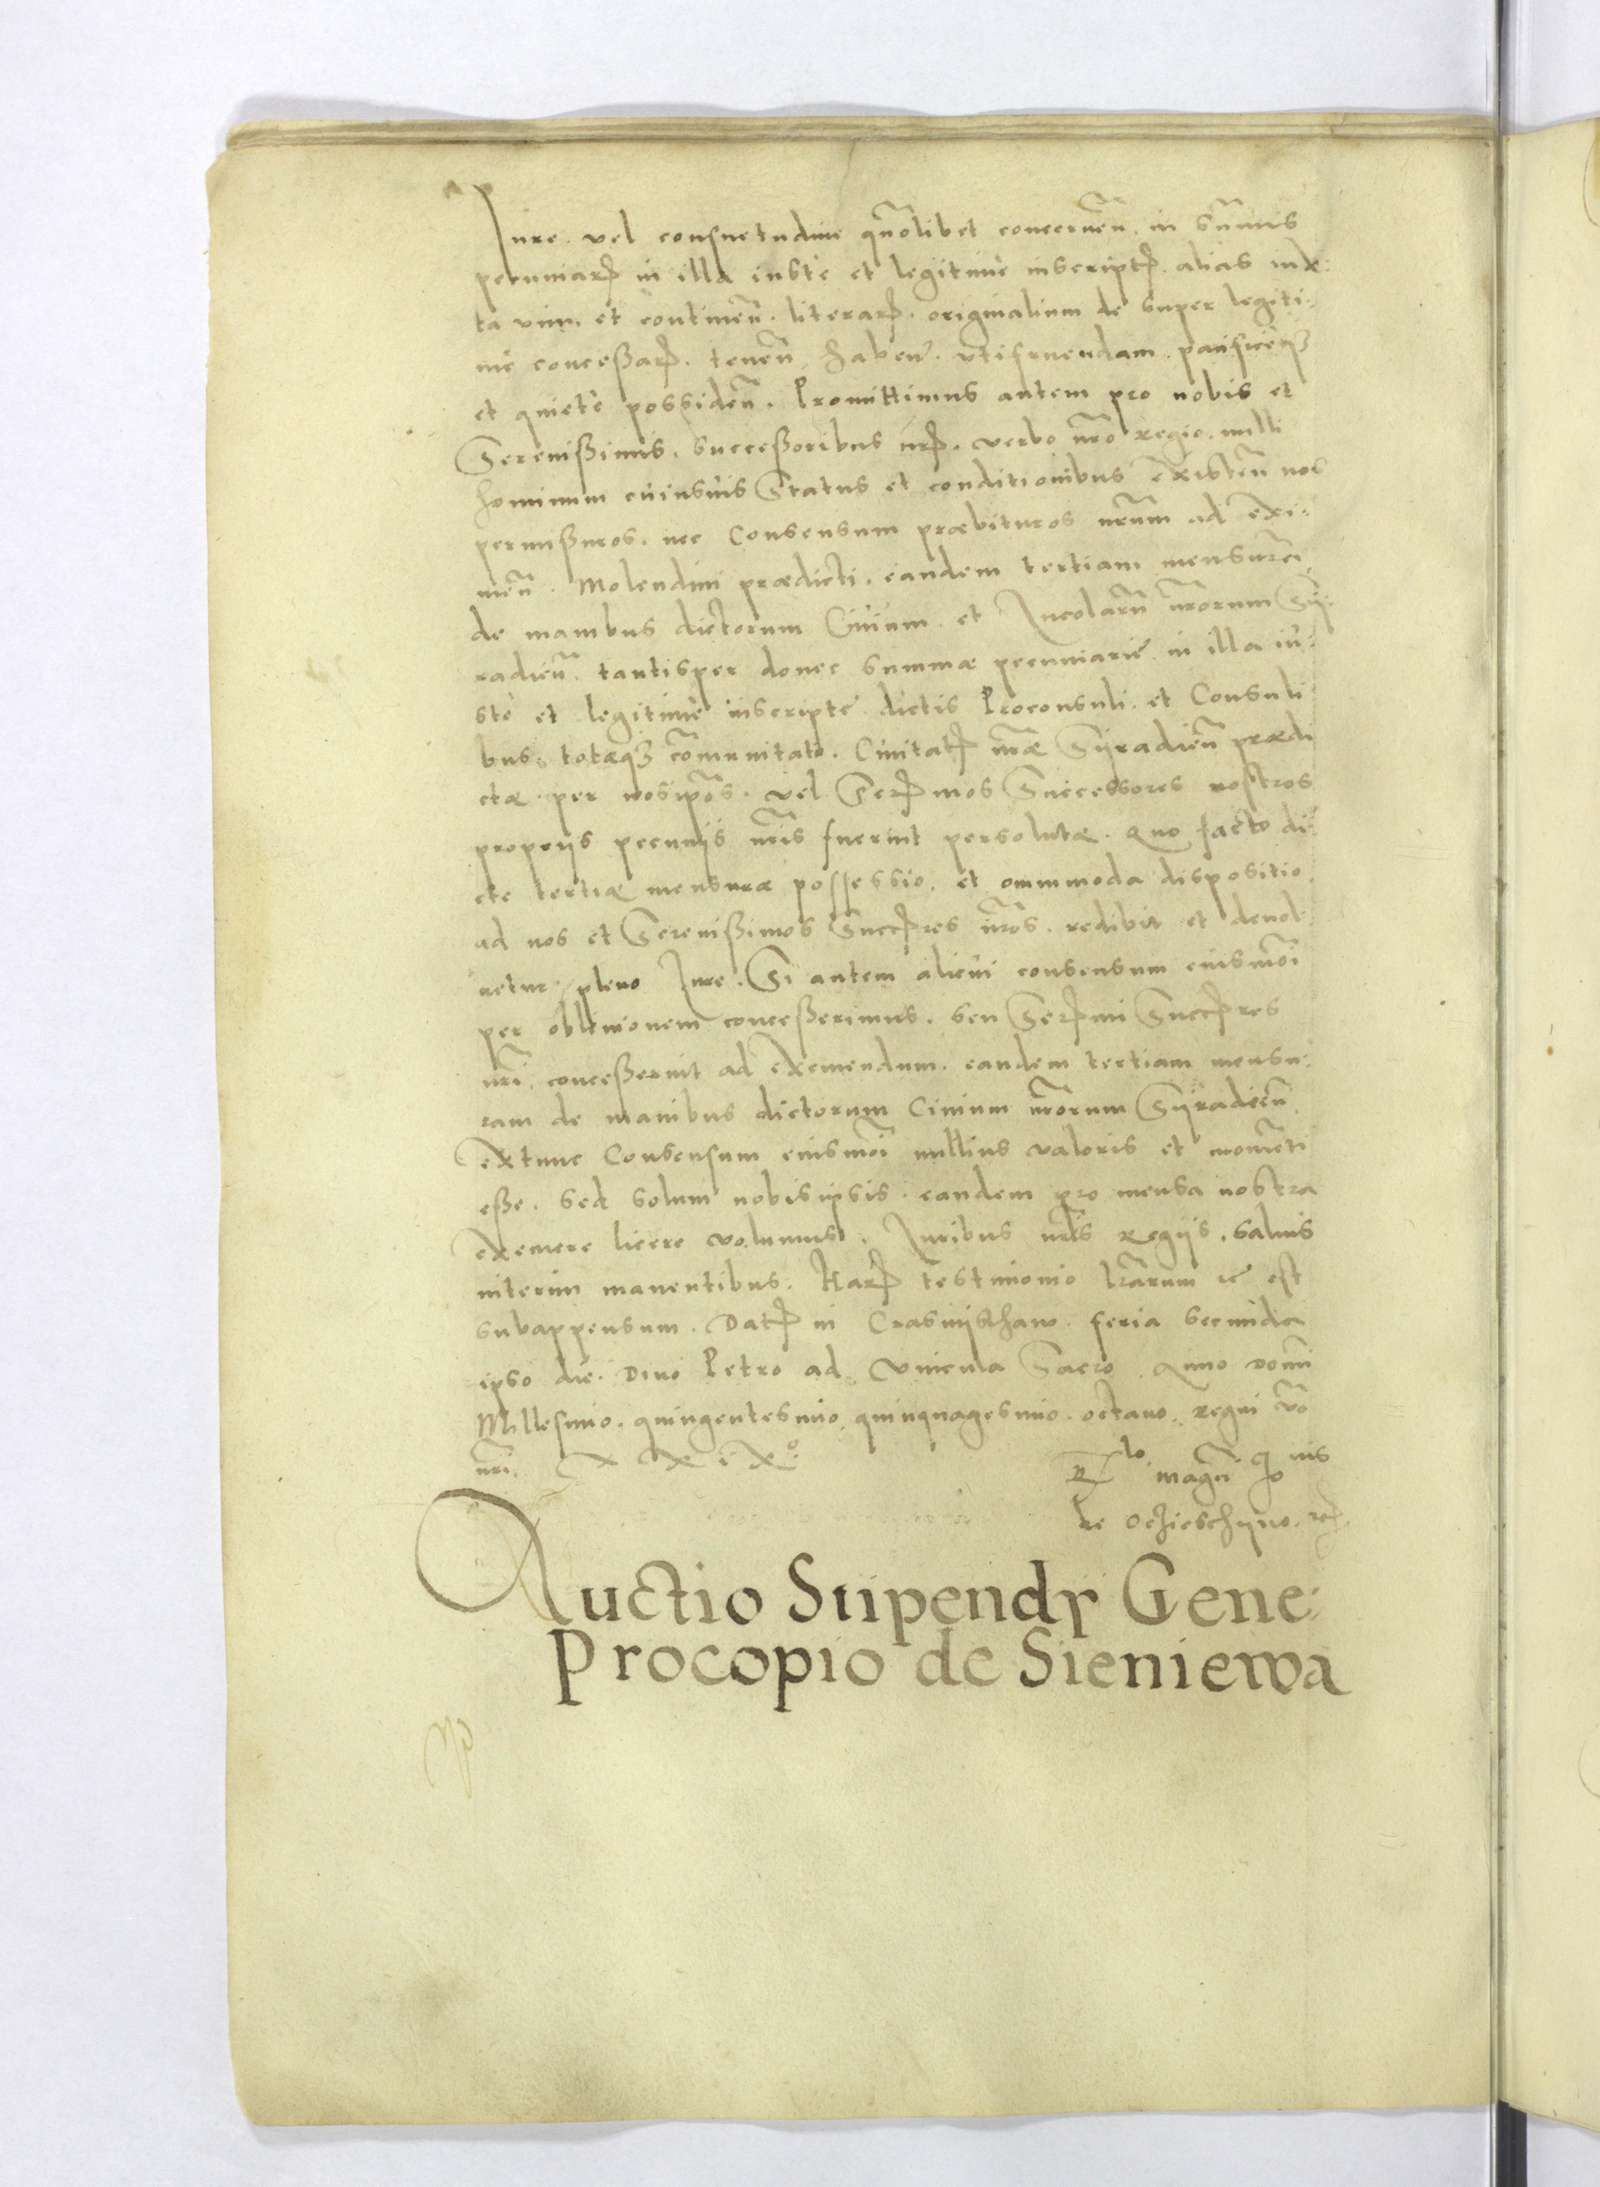 Iure. vel consuetudine qm̃olibet concernen̄. in sum̃is
pecuniarꝝ in illa iuste et legitime inscriptꝝ. alias iux:
ta vim. et continen̄. literarꝝ. originalium de super legiti:
me conceßarꝝ. tenen̄. haben̄. vtifruendam. pacifice
et quiete possiden̄. Promittimus antem pro nobis et
Serenißimis. succeßoribus nrꝝ. verbo nr̃o regio. nulli
hominum cuiusuis Status et conditionibus existen̄ nos
permißuros. nec Consensum præbituros nr̃um ad exi:
men̄. Molendini prædicti. eandem tertiam mensurã
de manibus dictorum Ciuium et Incolarū nr̃orum Sy:
radien̄. tantisper donec summæ pecuniarie in illa iu:
ste et legitime inscripte dictis Proconsuli. et Consuli
bus. totæqꝫ com̃unitati. Ciuitatꝭ nr̃æ Syradien̄ prædi
ctæ. per nosip̃os. vel Serꝭmos Successores nostros
proprijs pecunijs nr̃is fuerint persolutæ. Quo facto di:
cte tertiæ mensuræ possessio. et omnimoda dispositio.
ad nos et Serenißimos Succꝭres nr̃os. redibit et deuol
uetur pleno Iure. Si autem alicui consensum eiusmõi
per obliuionem conceßerimus. seu Serꝭmi Succꝭres
nr̃i. conceßerint ad eximendum. eandem tertiam mensu:
ram de manibus dictorum Ciuium nr̃orum Syradien̄.
extunc Consensum eiusmõi nullius valoris et momẽti
eße. sed solum nobisipsis. eandem pro mensa nostra
exemere licere volumus. Iuribus nr̃is Regijs. saluis
interim manentibus. Harꝝ testimonio lr̃arum
est
subappensum. Datꝭ in Crasnijsthaw. feria secunda
ipso die. Diuo Petro ad Vincula Sacro. Anno Domi
Millesimo. quingentesimo. quinquagesimo. octauo. Regni vo
nr̃i. XXIX°.
magn̄
de Oczieschyno.
Auctio Stipendy Gene:
Procopio de Sieniewa